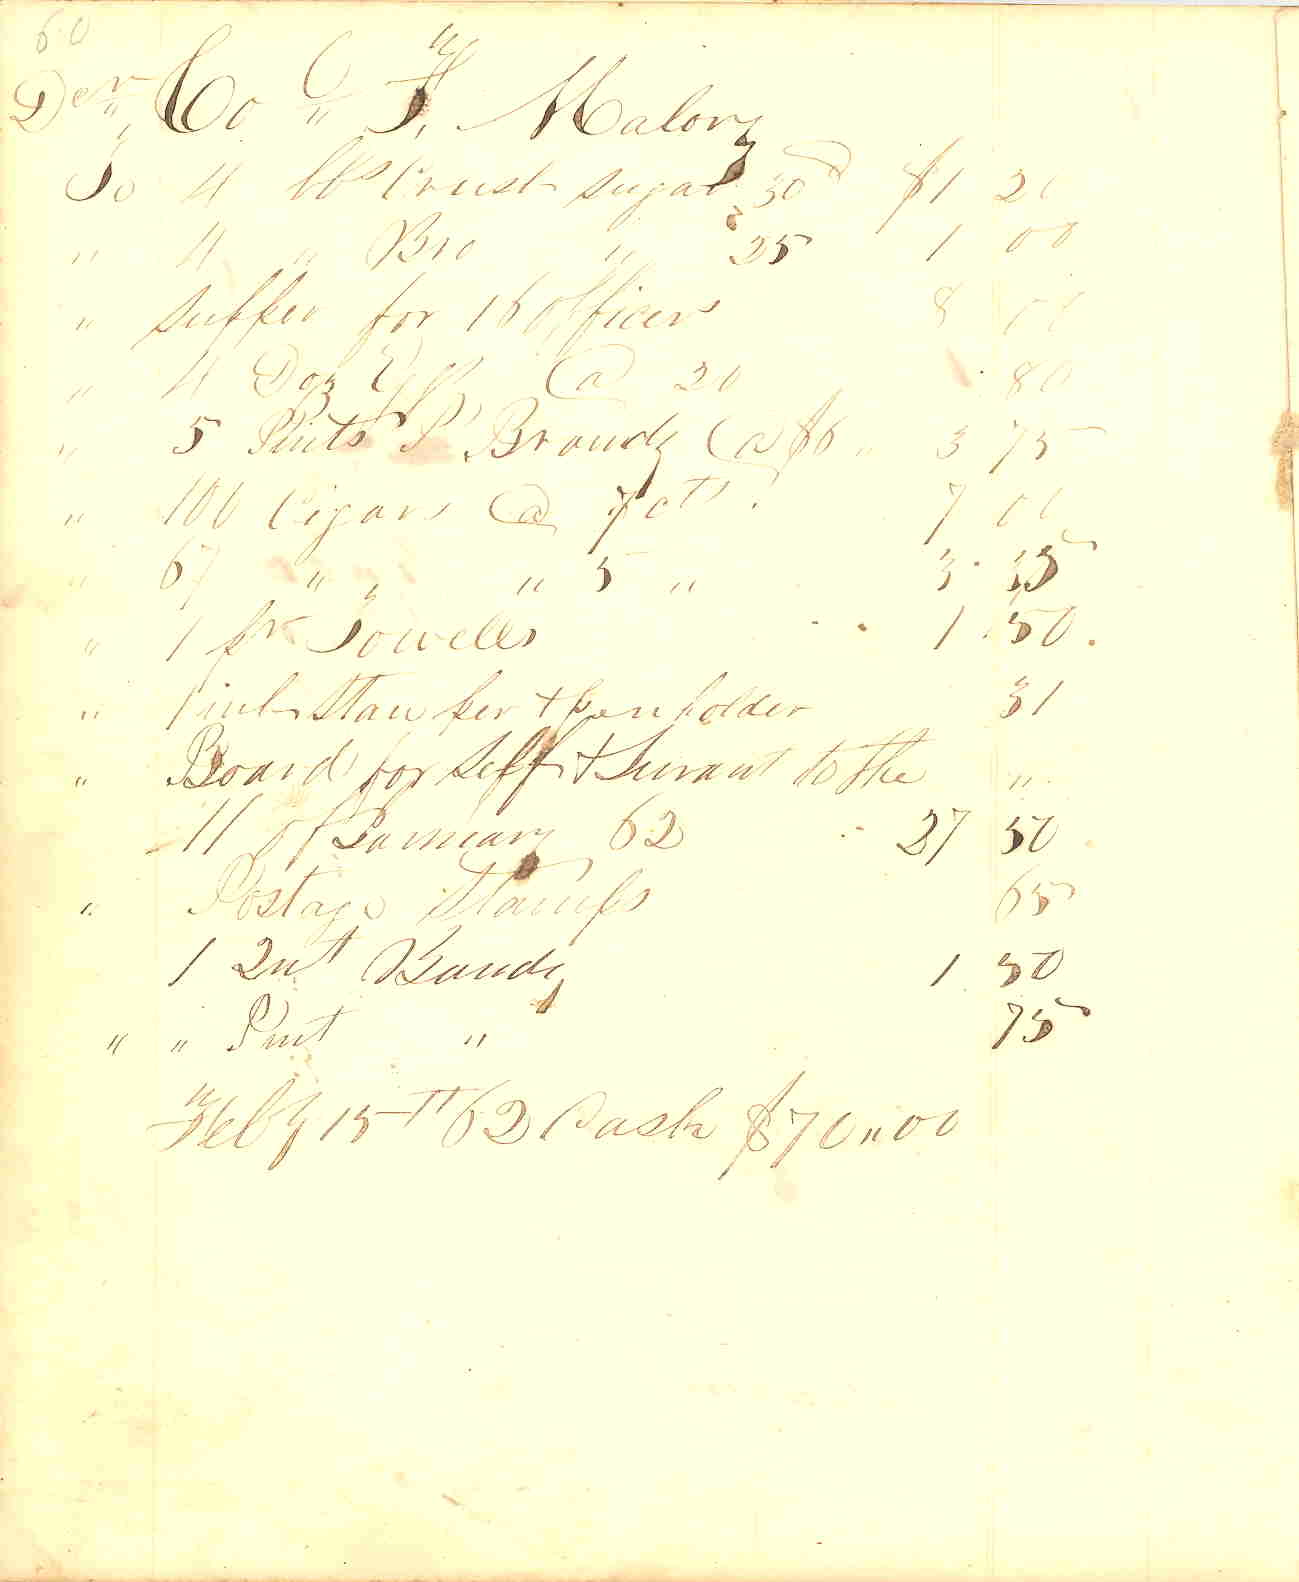 60
Der " Co " C " F. Malory
To 4 lbs Crust sugar 30 $1 20
" 4 " Bro " 25 1 00
" supper for 16 officers 8 00
" 4 Doz Eggs @ 20 80
" 5 Pints P Brandy @ $6 " 3 75
" 100 Cigars @ 7 cts. 7 00
" 67 " " " 5 " 3 35
" 1 pr Towells 1 50.
" 1 ink Stan per + penholder 31
" Board for self + Survant to the "
11 of January 62 27 50
" Postage Stamps 65
1 Qut Bandy 1 50
" " Pint " 75
Feby 15th 62 Cash $70 " 00